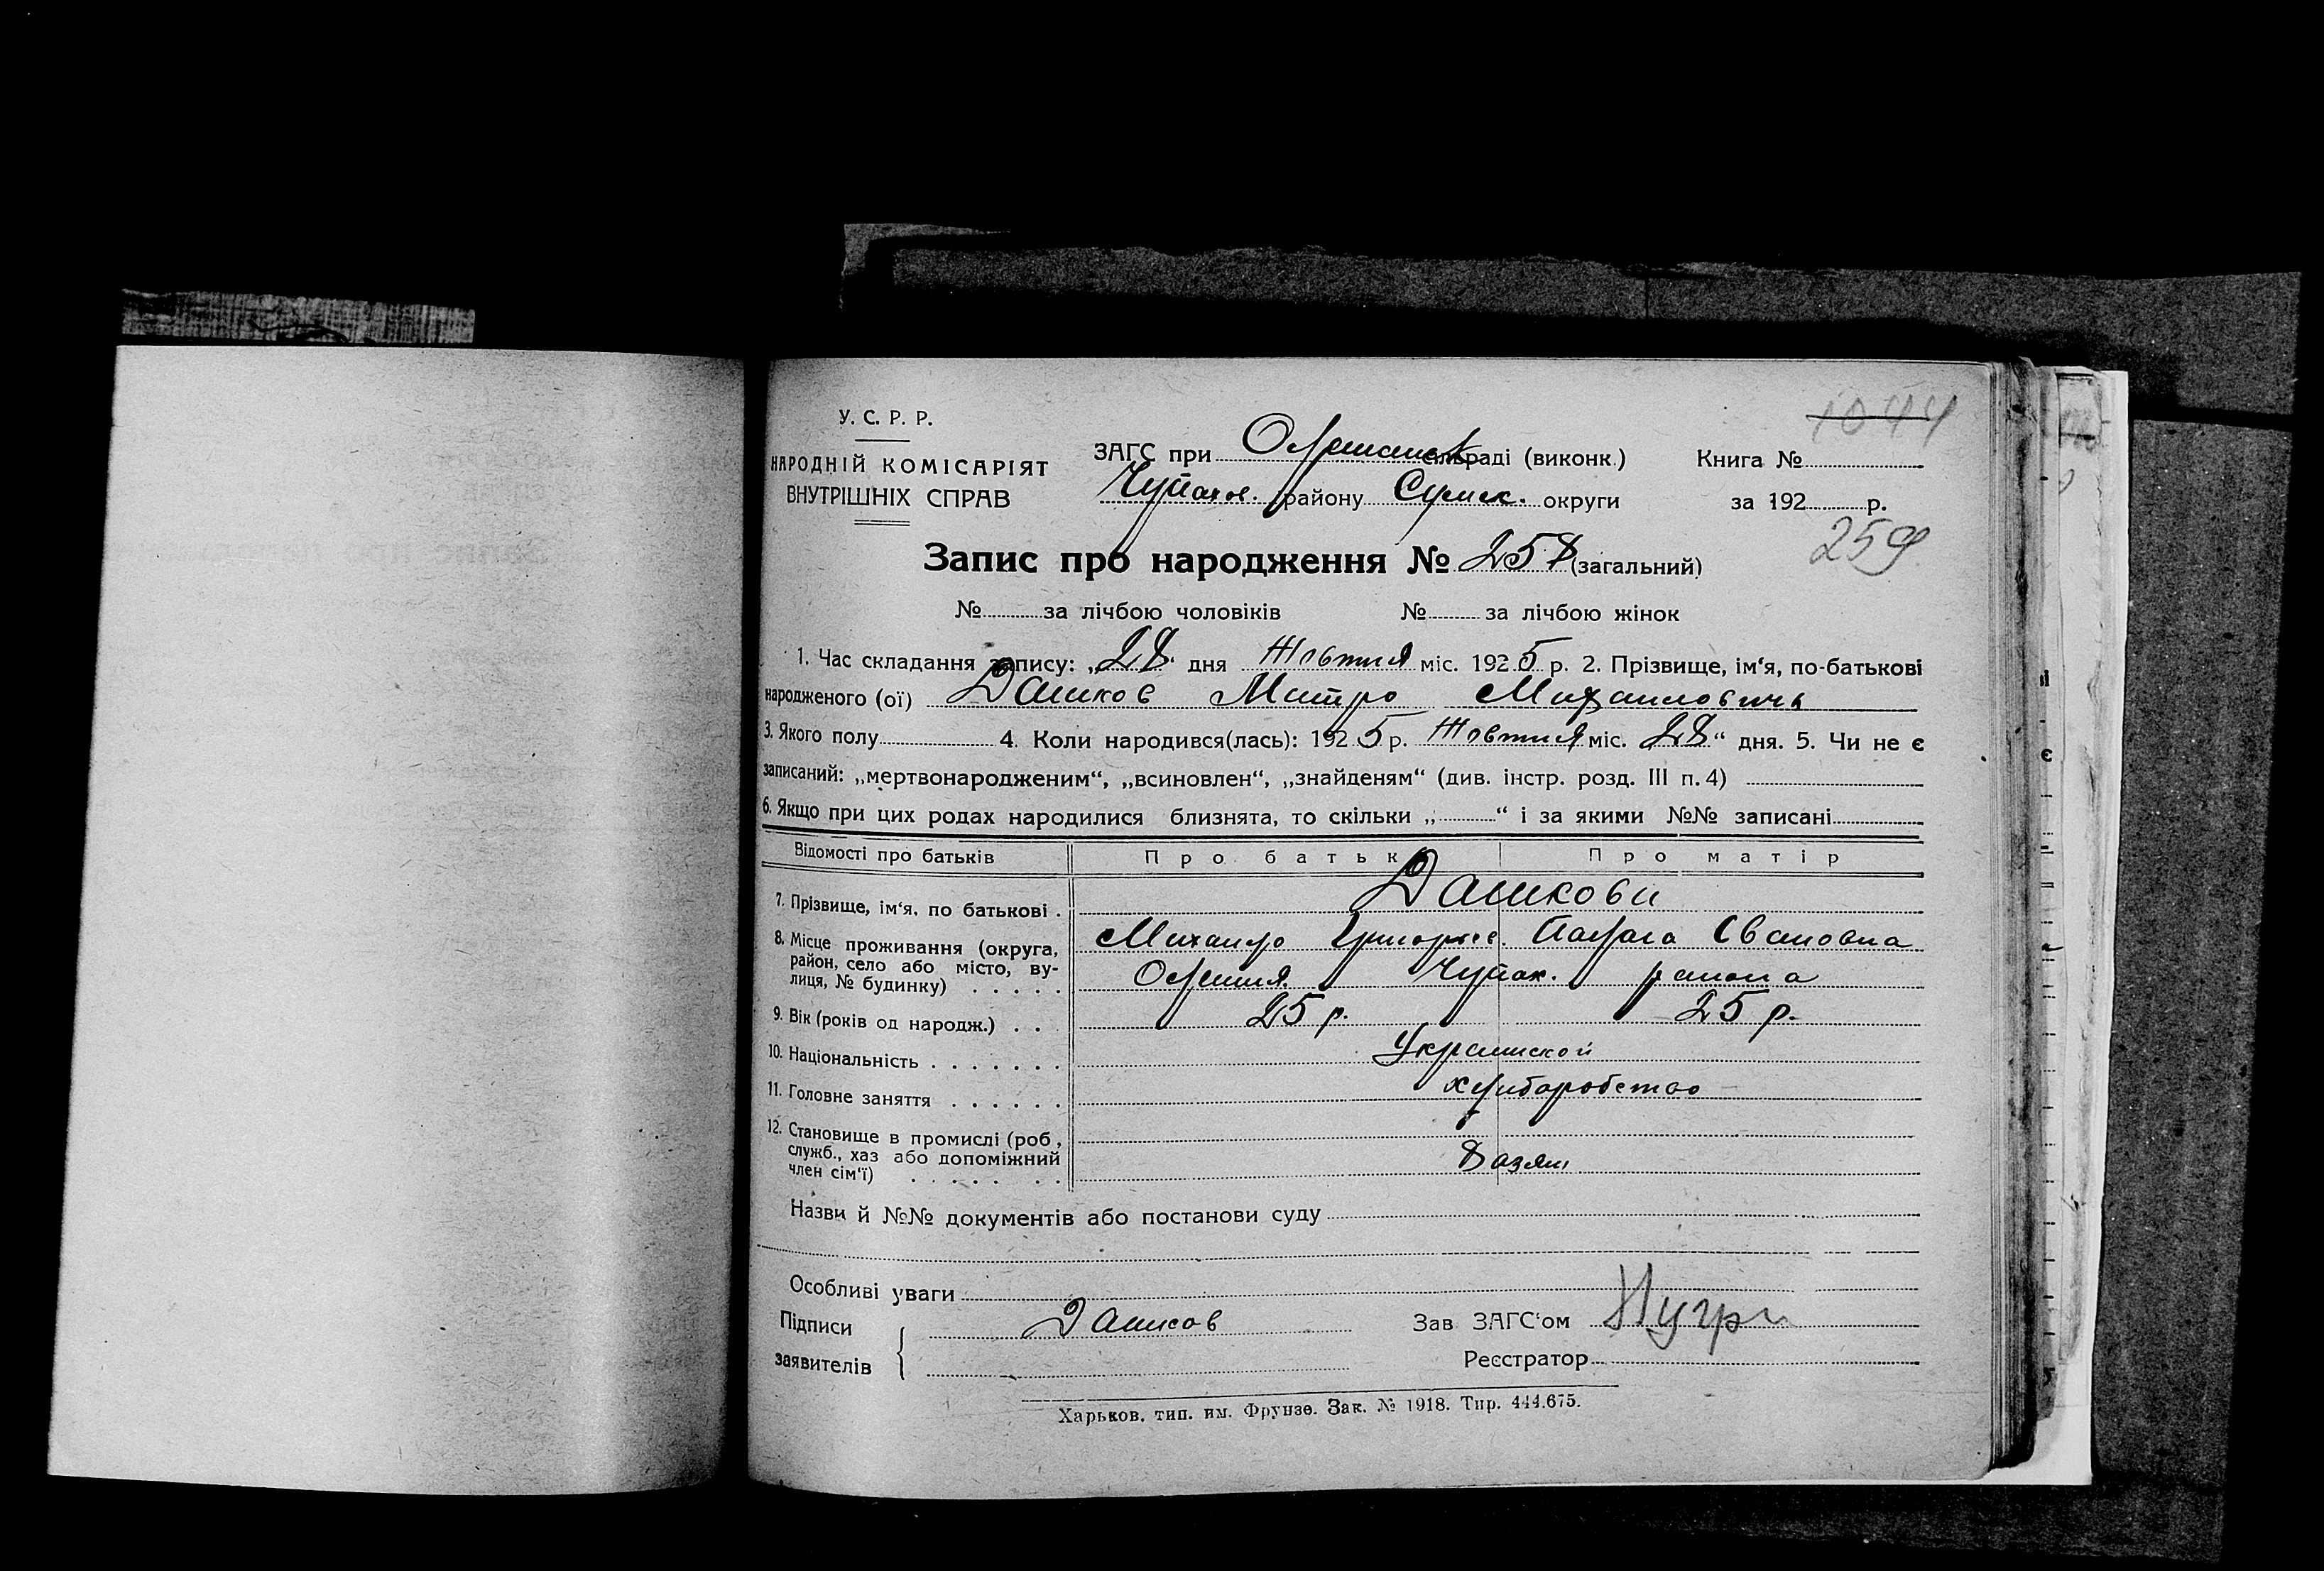 1044
У. С. Р. Р.
НАРОДНІЙ КОМІСАРІЯТ
ВНУТРІШНІХ СПРАВ
ЗАГС при сільраді (виконк.)
Чупахов. району Сумск. округи
Книга №
за 192 р.
259
Запис про народження № 258 (загальний)
№ за лічбою чоловіків № за лічбою жінок
1. Час складання запису: „28“ дня Жовтня міс. 1925 р. 2. Прізвище, ім‘я, по-батькові
народженого (ої) Дашков Митро Михаиловичь
3. Якого полу 4. Коли народився(лась): 1925 р. Жовтня міс. 28“ дня. 5. Чи не є
записаний: „мертвонародженим“, „всиновлен“, „знайденям“ (див. інстр. розд. III п. 4)
6. Якщо при цих родах народилися близнята, то скільки „ “ і за якими №№ записані
Відомості про батьків Про батька Про матір
7. Прізвище, ім‘я, по батькові . Дашкови
Григорьев. Ивановна
8. Місце проживання (округа,
район, село або місто, ву-
лиця, № будинку) . . . . . Олешня. Чупах. района
9. Вік (років од народж.) . . 25 р. 25 р.
10. Національність . . . . . . . Украинской
11. Головне заняття . . . . . . хлиборобство
12. Становище в промислі (роб.,
служб., хаз або допоміжний
член сім‘ї) . . . . . . .
Назви й №№ документів або постанови суду
Особливі уваги
Підписи
заявителів
Дашков
Зав ЗАГС‘ом
Реєстратор
Харьков. тип. им. Фрунзе. Зак. № 1918. Тир. 444.675.